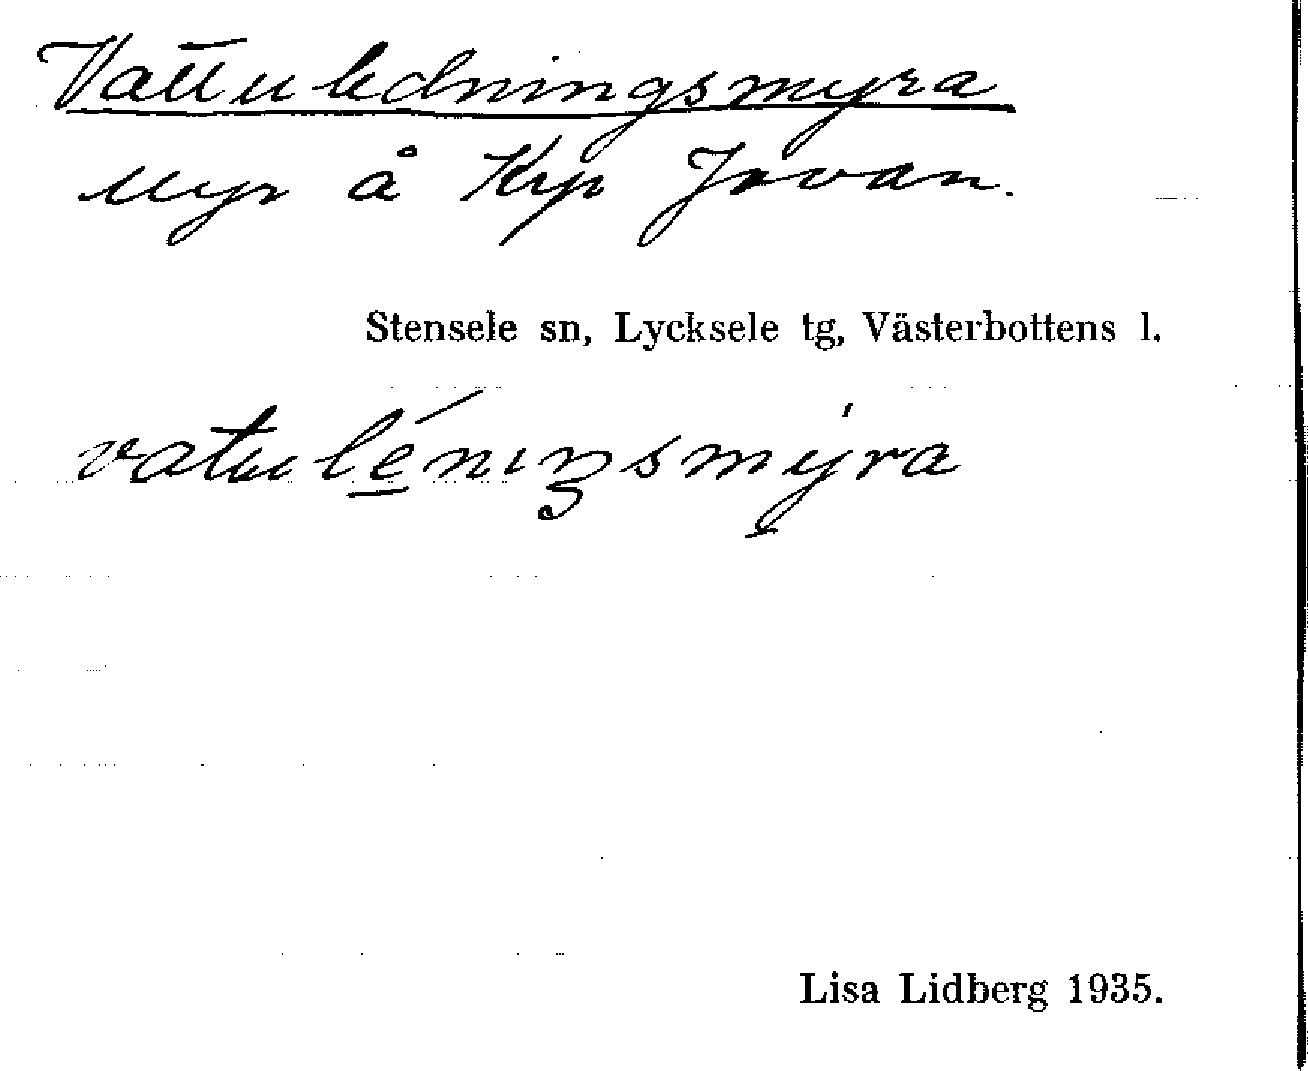 Vattuledningsmyra
Myr å Krp Jovan.
Stensele sn, Lycksele tg, Västerbottens l.
vatuléniŋsmýra
Lisa Lidberg 1935.